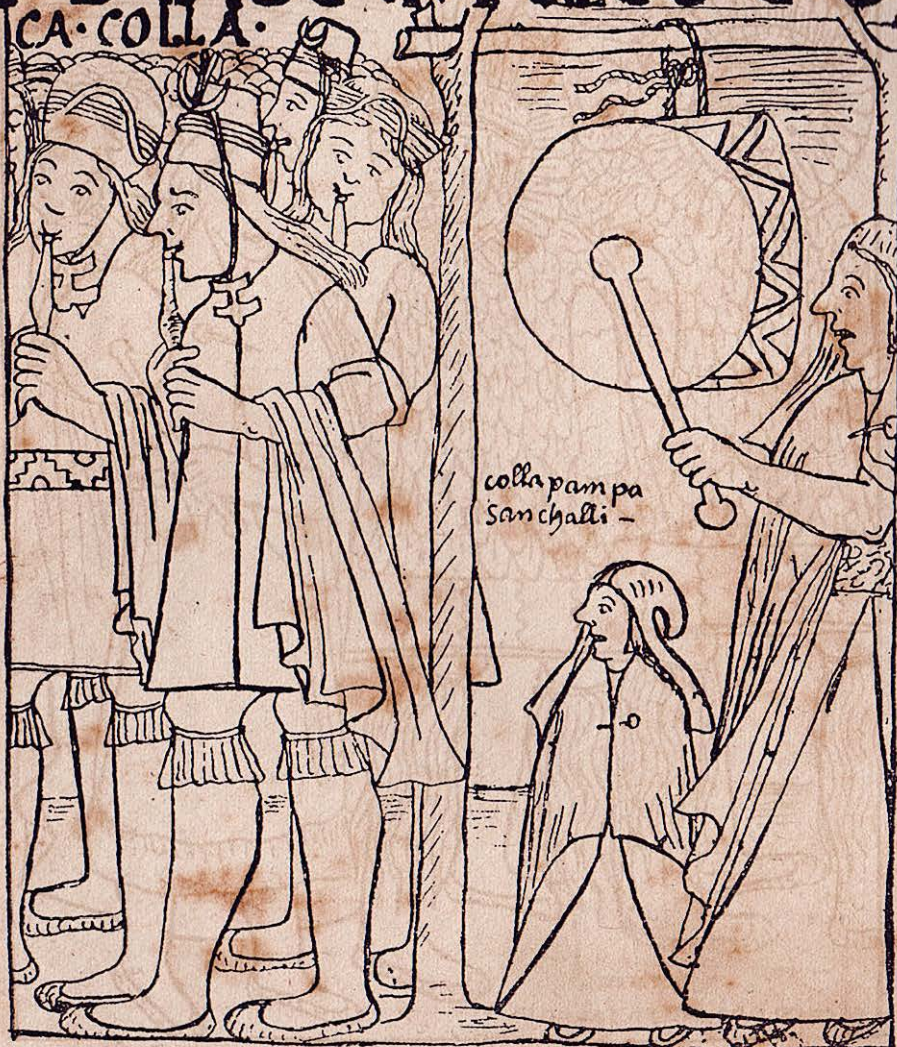 CA·COLLA·
colla pampa
sanchalli –